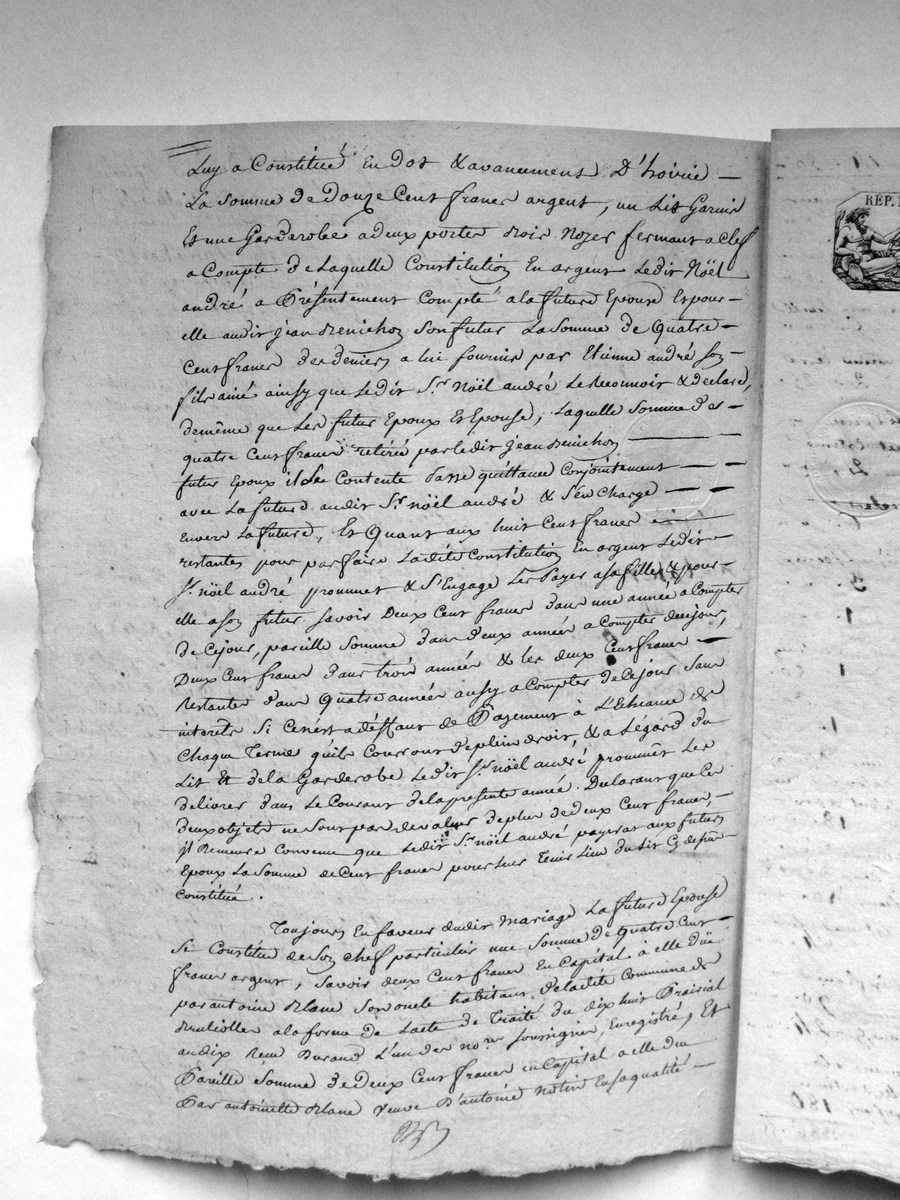 Luy a Constitué En dot & avancement D'hoirie —
La somme de Douze Cent franc argent, un Lit Garni
Et une Garderobe a deux portes bois Noyer fermant a clef
a Compte de Laquelle Constitution En argent Ledit Noël
andré a Présentement Compté a la future Epouse Et pour
elle audit jean Benichon Son futur La Somme de Quatre —
Cent franc des deniers a lui fournis par Etienne andré son —
fils ainé ainsy que Ledit Sr. Noël andré Le Reconnoit & declare,
demême que Les futur Epoux Et Epouse, Laquelle Somme des —
quatre Cent franc retiré par ledit jean Benichon —
futur Epoux il Se Contente Passe quittance Conjointement —
avec La future audit Sr. Noël andré & S'en Charge —
Envers La future, Et Quant aux huit Cent franc
restantes pour parfaire Ladite Constitution En argent Ledit —
Sr. Noël andré promet & S'Engage Les Payer a sa fille & pour —
elle a son futur Savoir Deux Cent franc dans une année a Compter
de Ce jour, pareille Somme dans deux année a Compter de ce jour,
Deux Cent franc dans trois année & les deux Cent franc —
Restantes dans Quatre année aussy a Compter de Ce jour Sans
interets Si Ce n'est a deffaut de Payement à L'Echeance de
Chaque Terme qu'ils Courront de plein droit, & a Légard du
Lit Et de la Garderobe Ledit Sr. Noël andré promet Les
delivrer dans Le Courant de la presente année. Declarant que Ces
deux objets ne Sont pas de valeur de plus de deux Cent franc, —
jl Demeure Convenu que Ledit Sr. Noël andré payerat aux futurs
Epoux La Somme de Cent franc pour Leur Tenir Lieu du Lit Cy dessus —
Constitué.
Toujours En faveur dudit Mariage La future Epouse
Se Constitue de Son Chef particulier une Somme de Quatre Cent
franc argent, Savoir deux Cent franc En Capital à elle Düe
par antoine Blanc Son oncle habitant de ladite Commune de
a la forme de Lacte de Traité du dix huit Prairial
an dix Reçu Durand L'un des nores Soussignés, Enregistré, Et
Pareille Somme de Deux Cent franc en Capital a elle due
Par antoinette Blanc veuve D'antoine En Sa qualité —
RÉP.